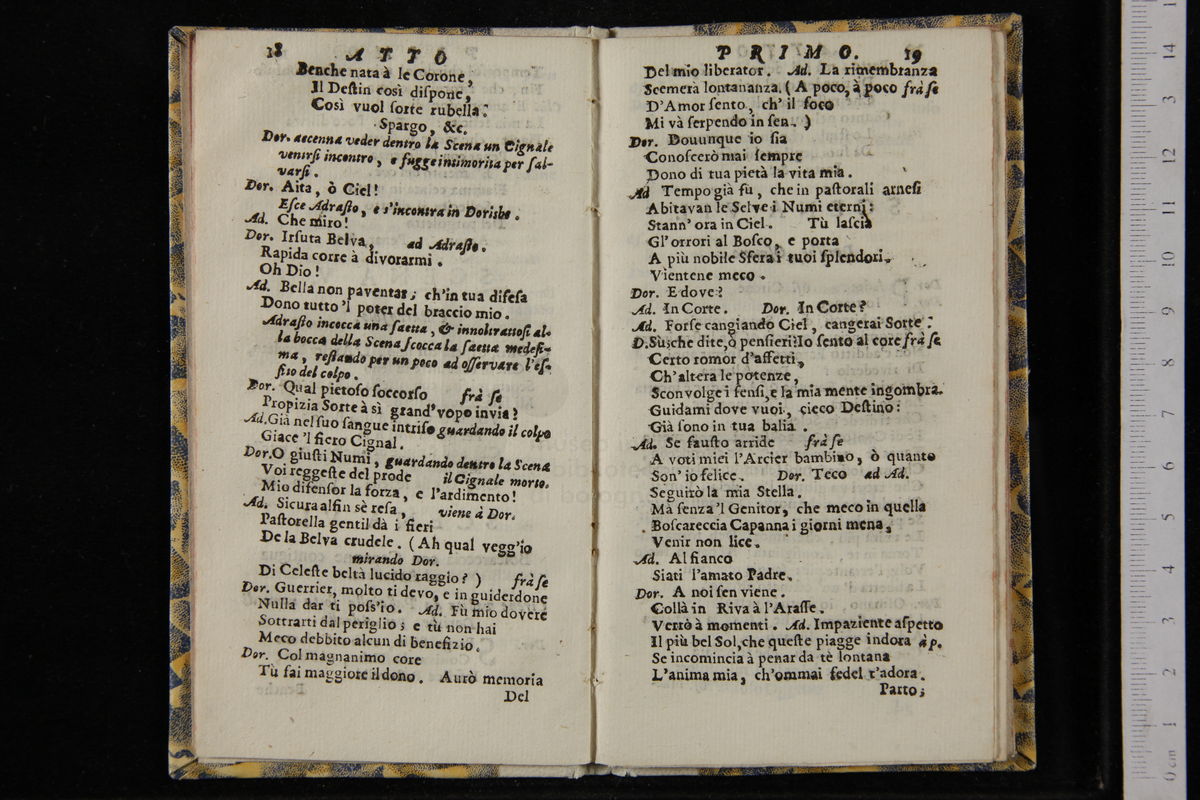 18 ATTO
Benche nata à le Corone,
Il Destin così dispone,
Così vuol sorte rubella:
Spargo, &c.
Dor. accenna veder dentro la Scena un Cignale
venirsi incontro, e fugge intimorita per sal-
varsi.
Dor. Aita, ò Ciel!
Esce Adrasto, e s'incontra in Dorisbe.
Ad. Che miro!
Dor. Irsuta Belva, ad Adrasto.
Rapida corre à divorarmi.
Oh Dio!
Ad. Bella non paventar; ch'in tua difesa
Dono tutto 'l poter del braccio mio.
Adrasto incocca una saetta, & innoltrattosi al-
la bocca della Scena scocca la saetta medesi-
ma, restando per un poco ad osservare l'ef-
fito del colpo.
Dor. Qual pietoso soccorso frà se
Propizia Sorte à sì grand'vopo invia?
Ad. Già nel suo sangue intriso guardando il colpo
Giace 'l fiero Cignal.
Dor. O giusti Numi, guardando dentro la Scena
Voi reggeste del prode il Cignale morto.
Mio difensor la forza, e l'ardimento!
Ad. Sicura alfin sè resa, viene à Dor.
Pastorella gentil dà i fieri
De la Belva crudele. (Ah qual vegg'io
mirando Dor.
Di Celeste beltà lucido raggio?) frà se
Dor. Guerrier, molto ti devo, e in guiderdone
Nulla dar ti poss'io. Ad. Fù mio dovere
Sottrarti dal periglio; e tù non hai
Meco debbito alcun di benefizio.
Dor. Col magnanimo core
Tù fai maggiore il dono. Aurò memoria
Del
PRIMO. 19
Del mio liberator. Ad. La rimembranza
Scemerà lontananza. (A poco, à poco frà se
D'Amor sento, ch'il foco
Mi và serpendo in sen.)
Dor. Dovunque io sia
Conoscerò mai sempre
Dono di tua pietà la vita mia.
Ad Tempo già fu, che in pastorali arnesi
Abitavan le Selve i Numi eterni:
Stann'ora in Ciel. Tù lascia
Gl'orrori al Bosco, e porta
A più nobile Sfera i tuoi splendori.
Vientene meco.
Dor. E dove?
Ad. In Corte. Dor. In Corte?
Ad. Forse cangiando Ciel, cangerai Sorte:
D. Sù; che dite, ò pensieri? Io sento al core frà se
Certo romor d'affetti,
Ch'altera le potenze,
Sconvolge i sensi, e la mia mente ingombra.
Guidami dove vuoi, cieco Destino:
Già sono in tua balia.
Ad. Se fausto arride frà se
A voti miei l'Arcier bambino, ò quanto
Son'io felice. Dor. Teco ad Ad.
Seguirò la mia Stella.
Mà senza 'l Genitor, che meco in quella
Boscareccia Capanna i giorni mena,
Venir non lice.
Ad. Al fianco
Siati l'amato Padre.
Dor. A noi sen viene.
Collà in Riva à l'Arasse.
Verrò à momenti. Ad. Impaziente aspetto
Il più bel Sol, che queste piagge indora à p.
Se incomincia à penar da tè lontana
L'anima mia, ch'ommai fedel t'adora.
Parto;